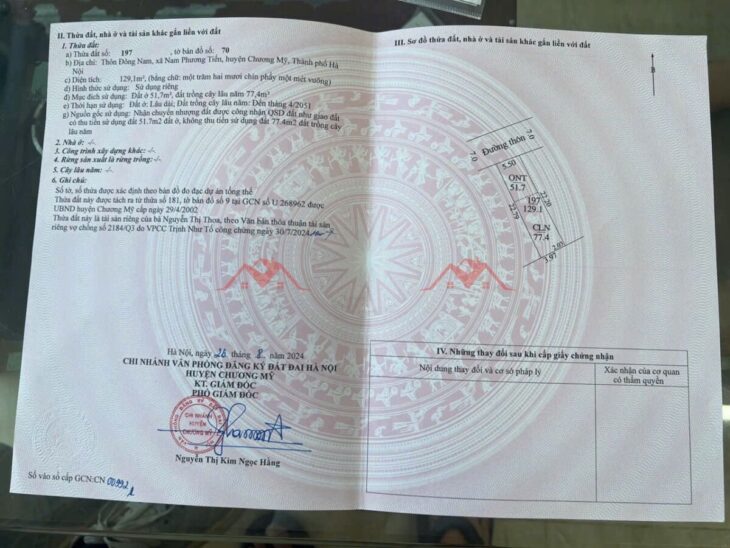 II. Thửa đất, nhà ở và tài sản khác gắn liền với đất
1. Thửa đất:
a) Thửa đất số: 197 , tờ bản đồ số: 70
b) Địa chỉ: Thôn Đông Nam, xã Nam Phương Tiến, huyện Chương Mỹ, Thành phố Hà
Nội
c) Diện tích: 129,1m², (bằng chữ: một trăm hai mươi chín phẩy một mét vuông)
d) Hình thức sử dụng: Sử dụng riêng
đ) Mục đích sử dụng: Đất ở 51,7m², đất trồng cây lâu năm 77,4m²
e) Thời hạn sử dụng: Đất ở: Lâu dài; Đất trồng cây lâu năm: Đến tháng 4/2051
g) Nguồn gốc sử dụng: Nhận chuyển nhượng đất được công nhận QSD đất như giao đất
có thu tiền sử dụng đất 51.7m2 đất ở, không thu tiền sử dụng đất 77.4m2 đất trồng cây
lâu năm
2. Nhà ở: -/-
3. Công trình xây dựng khác: -/-
4. Rừng sản xuất là rừng trồng: -/-
5. Cây lâu năm: -/-
6. Ghi chú:
Số tờ, số thửa được xác định theo bản đồ đo đạc dự án tổng thể
Thửa đất này được tách ra từ thửa 181, tờ bản đồ số 9 tại GCN số U 268962 được
UBND huyện Chương Mỹ cấp ngày 29/4/2002
Thửa đất này là tài sản riêng của bà Nguyễn Thị Thoa, theo Văn bản thỏa thuận tài sản
riêng vợ chồng số 2184/Q3 do VPCC Trịnh Như Tố công chứng ngày 30/7/2024
Hà Nội, ngày 26 tháng 8 năm 2024
CHI NHÁNH VĂN PHÒNG ĐĂNG KÝ ĐẤT ĐAI HÀ NỘI
HUYỆN CHƯƠNG MỸ
KT. GIÁM ĐỐC
PHÓ GIÁM ĐỐC
CHI NHÁNH
HUYỆN
CHƯƠNG MỸ
Nguyễn Thị Kim Ngọc Hằng
Số vào sổ cấp GCN:CN 00992
III. Sơ đồ thửa đất, nhà ở và tài sản khác gắn liền với đất
B
Đường thôn
7.0
7.0
5.50
ONT
51.7
22.20
197
129.1
22.79
CLN
77.4
2.03
3.97
IV. Những thay đổi sau khi cấp giấy chứng nhận
Nội dung thay đổi và cơ sở pháp lý
Xác nhận của cơ quan
có thẩm quyền